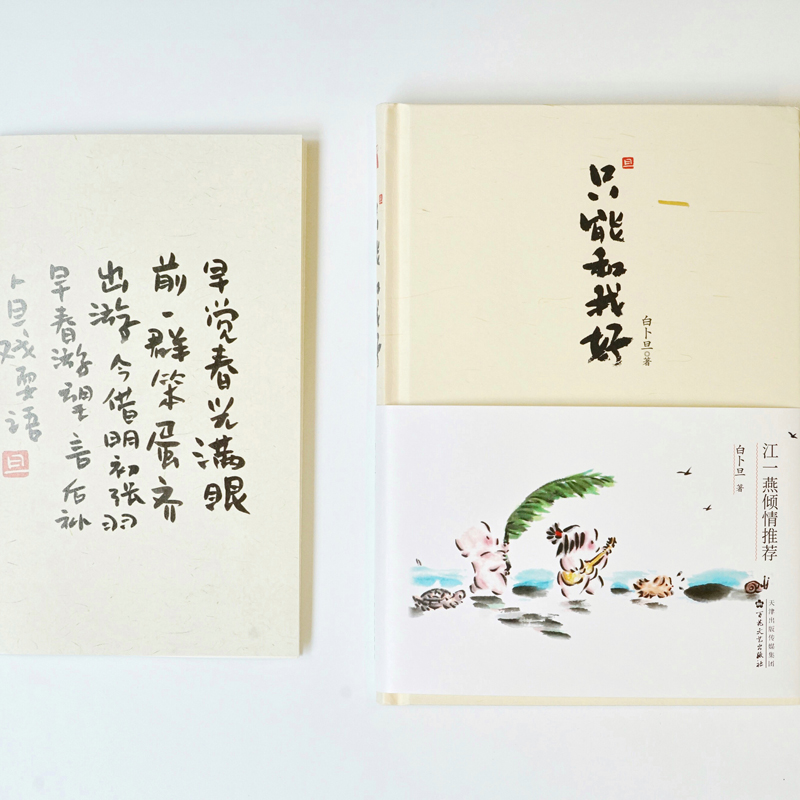 早觉春光满眼
前一群笨蛋齐
出游今借明初张羽
早春游望
卜旦戏耍语
旦
旦
只能和我好
旦
只能和我好
白卜旦◎著
江一燕倾情推荐
白卜旦 著
天津出版传媒集团
百花文艺出版社